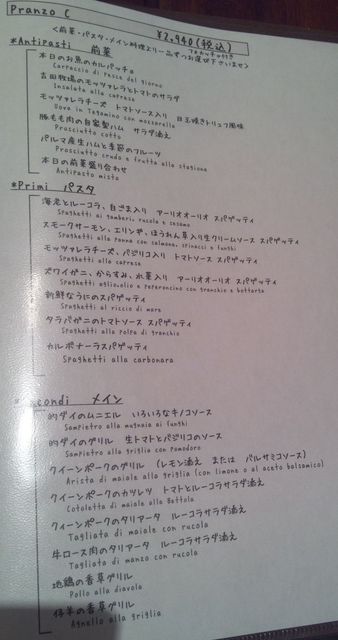 Pranzo C
¥2,940(税込)
<前菜・パスタ・メイン料理より一品ずつお選び下さいませ>
*Antipasti 前菜
本日のお魚のカルパッチョ
Carpaccio di Pesce del giorno
吉田牧場のモッツァレラとトマトのサラダ
Insalata alla caprese
モッツァレラチーズ トマトソース入り 目玉焼きトリュフ風味
Uovo in Tegamino con mozzarella
豚もも肉の自家製ハム サラダ添え
Prosciutto cotto
パルマ産生ハムと季節のフルーツ
Prosciutto crudo e frutta alla stagione
本日の前菜盛り合わせ
Antipasto misto
*Primi パスタ
海老とルーコラ、白ごま入り アーリオオーリオ スパゲッティ
Spaghetti ai gamberi, rucola e sesamo
スモークサーモン、エリンギ、ほうれん草入り生クリームソース スパゲッティ
Spaghetti alla panna con salmone, spinaci e funghi
モッツァレラチーズ、バジリコ入り トマトソース スパゲッティ
Spaghetti alla caprese
ズワイガニ、からすみ、水菜入り アーリオオーリオ スパゲッティ
Spaghetti aglio,olio e peperoncino con granchio e bottarga
新鮮なうにのスパゲッティ
Spaghetti al riccio di mare
タラバガニのトマトソース スパゲッティ
Spaghetti alla polpa di granchio
カルボナーラスパゲッティ
Spaghetti alla carbonara
econdi メイン
的ダイのムニエル いろいろなキノコソース
Sampietro alla mugnaia ai funghi
的ダイのグリル 生トマトとバジリコのソース
Sampietro alla griglia con pomodoro
クイーンポークのグリル (レモン添え または バルサミコソース)
Arista di maiale alla griglia (con limone o al aceto balsamico)
クイーンポークのカツレツ トマトとルーコラサラダ添え
Cotoletta di maiale alla Bettola
クイーンポークのタリアータ ルーコラサラダ添え
Tagliata di maiale con rucola
牛ロース肉のタリアータ ルーコラサラダ添え
Tagliata di manzo con rucola
地鶏の香草グリル
Pollo alla diavola
仔羊の香草グリル
Agnello alla griglia